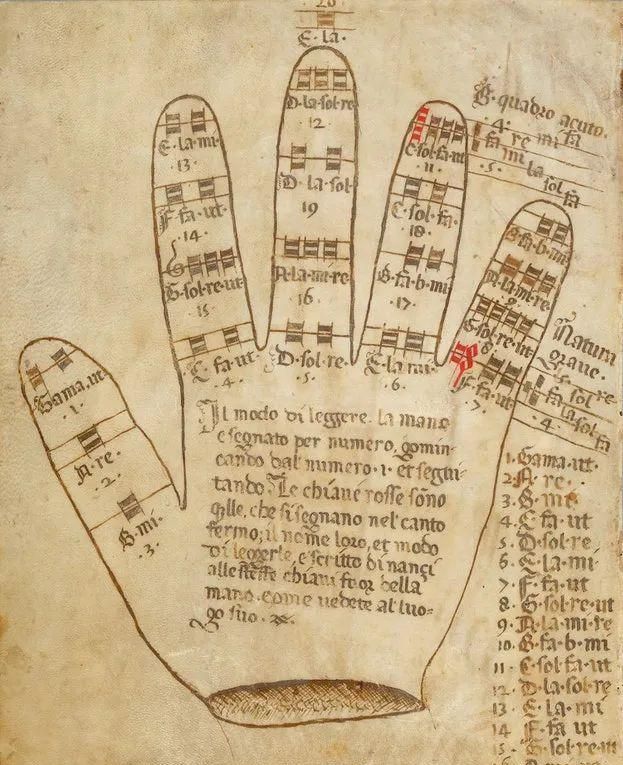 20
E·la·
D·la·sol·re
12
E·la·mi·
13·
C·sol·fa·ut
11
♮·quadro acuto·
·4· re mi fa
fa mi la sol fa
·5·
D·la·sol·
19
F·fa·ut·
·14·
C·sol·fa·
·18·
B·fa·b·mi
A·la·mi·re
9
G·sol·re·ut
15
A·la·mi·re
16
B·fa·b·mi
·17·
G·sol·re·ut
8
Natura
grave·
·5· sol re
fa la sol fa
·4·
C·fa·ut
·4·
D·sol·re·
·5·
E·la·mi
·6
F·fa·ut
·7·
Gama·ut·
·1·
A·re·
·2·
B·mi·
·3·
Il modo di leggere· la mano
e segnato per numero, gomin-
cando dal numero·1· et segui-
tando· Le chiavi rosse sono
qlle, che si segnano nel canto
fermo; il nome loro, et modo
di legerle, e scritto dinanci
alle stesse chiavi fuor della
mano·come vedete al luo-
go suo·
1·Gama·ut·
2·A·re·
3·B·mi·
4·C·fa·ut
5·D·sol·re
6·E·la·mi
7·F·fa·ut
8·G·sol·re·ut
9·A·la·mi·re
10·B·fa·b·mi
11·C·sol·fa·ut
12·D·la·sol·re
13·E·la·mi
14·F·fa ut
15·G·sol·re·ut